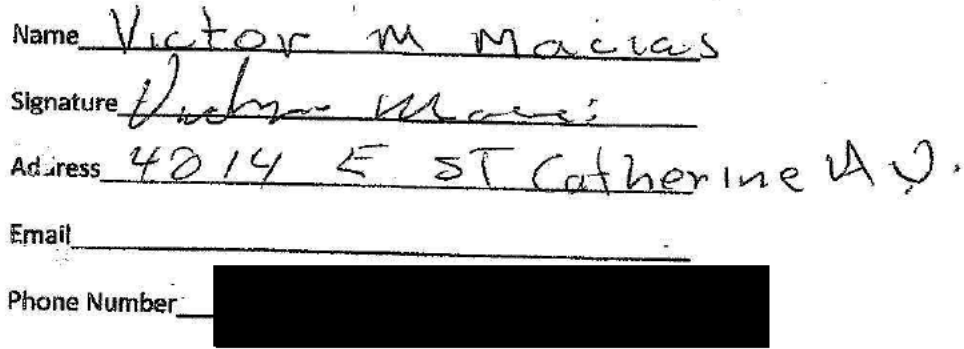 Name Victor M Macias
Signature Victor Macias
Address 4014 E ST Catherine AV.
Email
Phone Number